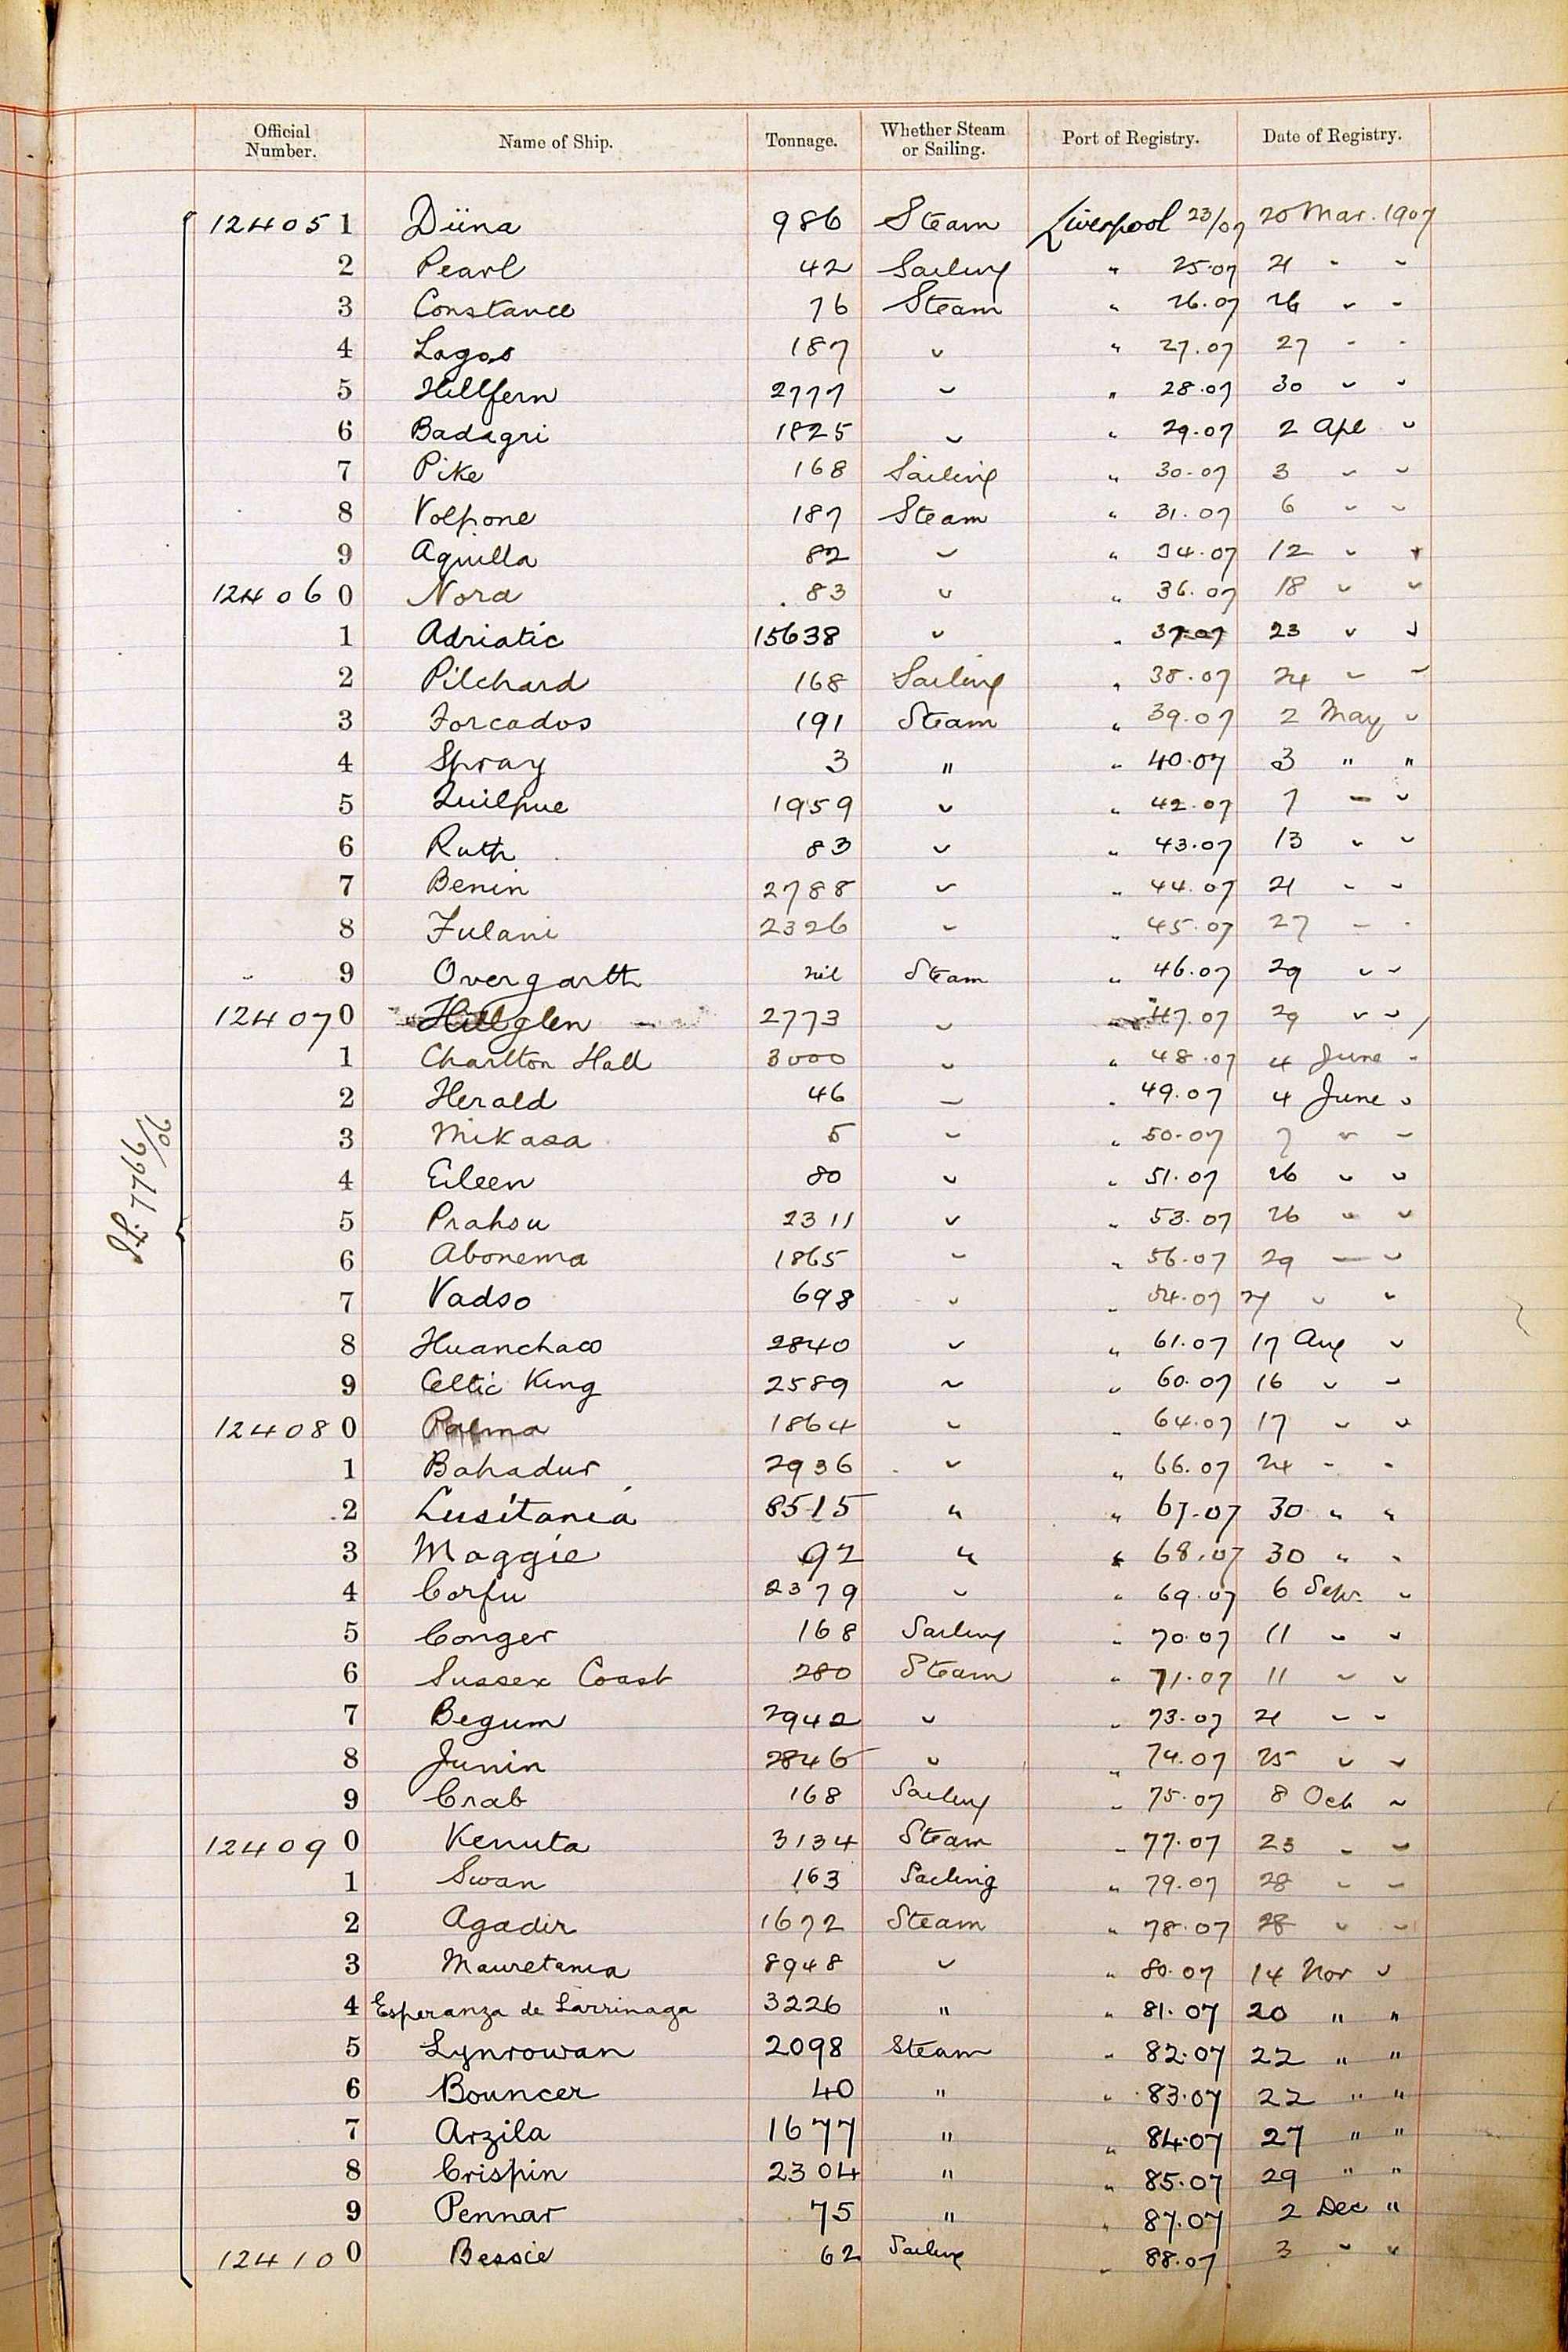 Official Number. Name of Ship. Tonnage. Whether Steam or Sailing. Port of Registry. Date of Registry.
124051 Düna 986 Steam Liverpool 23/07 20 Mar. 1907
2 Pearl 42 Sailing " 25.07 21 " "
3 Constance 76 Steam " 26.07 26 " "
4 Lagos 187 " " 27.07 27 " "
5 Hillfern 2777 " " 28.07 30 " "
6 Badagri 1825 " " 29.07 2 Apl "
7 Pike 168 Sailing " 30.07 3 " "
8 Volpone 187 Steam " 31.07 6 " "
9 Aquilla 82 " " 34.07 12 " "
124060 Nora 83 " " 36.07 18 " "
1 Adriatic 15638 " " 37.07 23 " "
2 Pilchard 168 Sailing " 38.07 24 " "
3 Forcados 191 Steam " 39.07 2 May "
4 Spray 3 " " 40.07 3 " "
5 Quilpue 1959 " " 42.07 7 " "
6 Ruth 83 " " 43.07 13 " "
7 Benin 2788 " " 44.07 21 " "
8 Fulani 2326 " " 45.07 27 " "
9 Overgarth nil Steam " 46.07 29 " "
124070 Hillglen 2773 " " 47.07 29 " "
1 Charlton Hall 3000 " " 48.07 4 June "
2 Herald 46 " " 49.07 4 June "
3 Mikasa 5 " " 50.07 7 " "
4 Eileen 80 " " 51.07 26 " "
5 Prahsu 2311 " " 53.07 26 " "
6 Abonema 1865 " " 56.07 29 " "
7 Vadso 698 " " 54.07 " "
8 Huanchaco 2840 " " 61.07 17 Aug "
9 Celtic King 2589 " " 60.07 16 " "
124080 Palma 1864 " " 64.07 17 " "
1 Bahadur 2936 " " 66.07 24 " "
2 Lusitania 8515 " " 67.07 30 " "
3 Maggie 92 " " 68.07 30 " "
4 Corfu 2379 " " 69.07 6 Sepr. "
5 Conger 168 Sailing " 70.07 11 " "
6 Sussex Coast 280 Steam " 71.07 11 " "
7 Begum 2942 " " 73.07 21 " "
8 Junin 2846 " " 74.07 25 " "
9 Crab 168 Sailing " 75.07 8 Oct "
124090 Kenuta 3134 Steam " 77.07 23 " "
1 Swan 163 Sailing " 79.07 28 " "
2 Agadir 1672 Steam " 78.07 28 " "
3 Mauretania 8948 " " 80.07 14 Nov "
4 Esperanza de Larrinaga 3226 " " 81.07 20 " "
5 Lynrowan 2098 Steam " 82.07 22 " "
6 Bouncer 40 " " 83.07 22 " "
7 Arzila 1677 " " 84.07 27 " "
8 Crispin 2304 " " 85.07 29 " "
9 Pennar 75 " " 87.07 2 Dec "
124100 Bessie 62 Sailing " 88.07 3 " "
7766/06